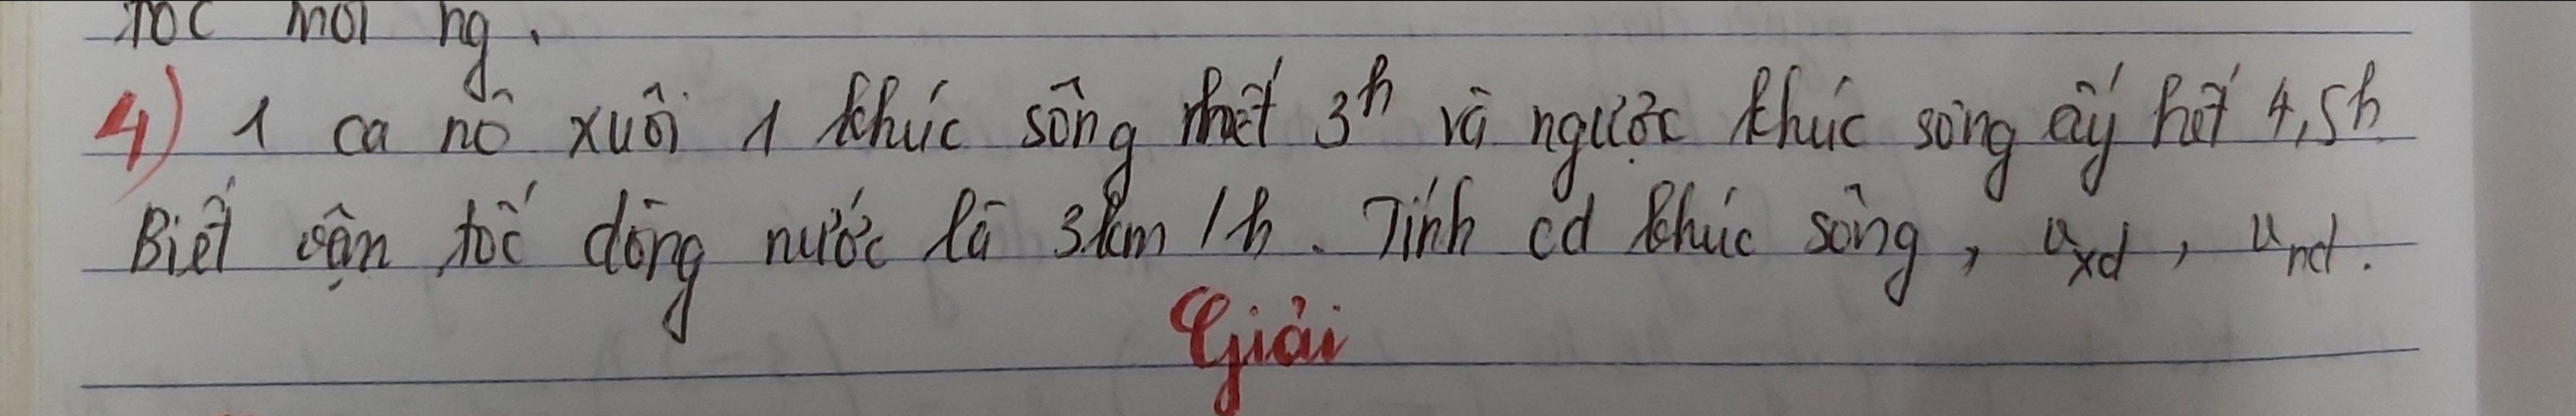 tốc mỗi ng.
4) 1 ca nô xuôi 1 khúc sông hết 3h và ngược khúc sông ấy hết 4,5h
Biết vận tốc dòng nước là 3km/h. Tính cd khúc sông, vxd, vnd.
Giải